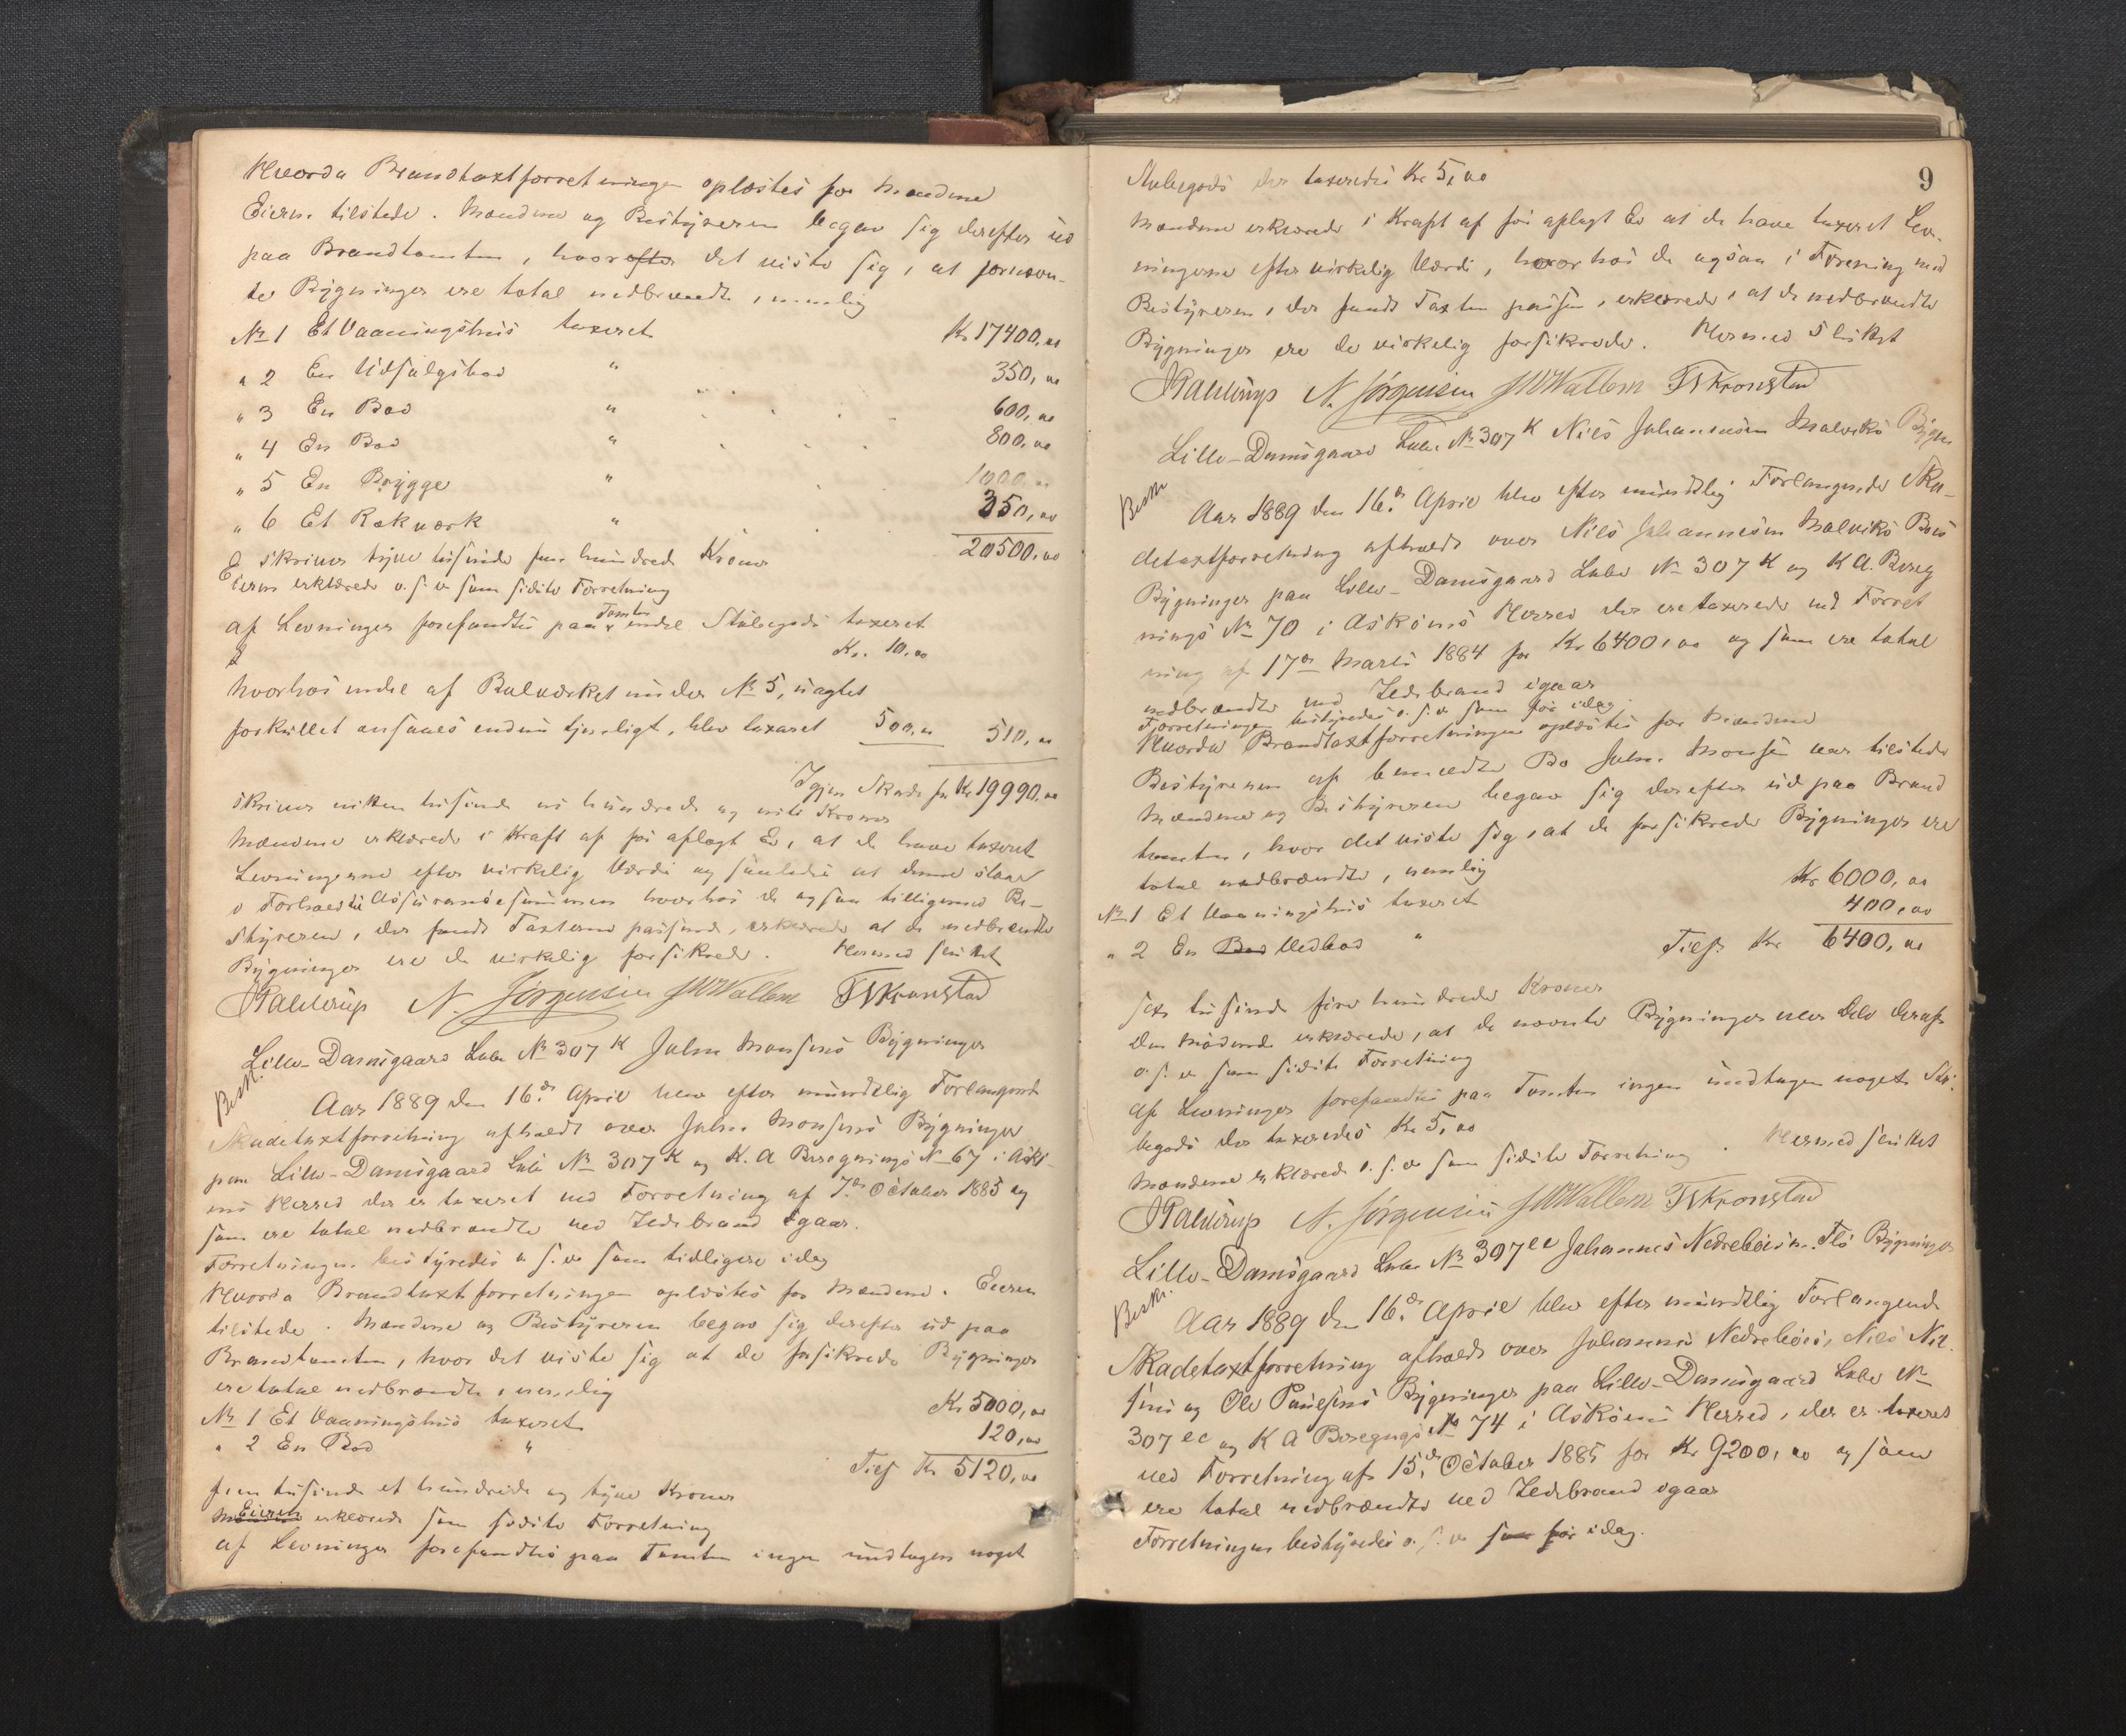 Hvorda Brandtaxtforretningen oplæstes for Mændene
Eieren tilstede. Mændene og Bestyreren begav sig derefter ud
paa Brandtomten, hvorefter det viste sig, at fornævn-
te Bygninger ere total nedbrændte, nemlig
No 1 Et Vaaningshus taxeret Kr 17400,00
" 2 En Udsalgsbod " 350,00
" 3 En Bod " 600,00
" 4 En Bod " 800,00
" 5 En Brygge " 1000,00
" 6 Et Rækværk " 350,00
skriver tyve tusinde fem hundrede Kroner 20500,00
Eieren erklærede o. s. v som sidste Forretning
af Levninger forefandtes paa Tomten endel Stubegods taxeret
Kr. 10,00
hvorhos endel af Bulværket under No 5, uagtet
forkullet ansaaes endnu tjenligt, blev taxeret 500,00 510,00
Igjen Skade for Kr 19990,00
skriver nitten tusinde ni hundrede og niti Kroner
Mændene erklærede i Kraft af før aflagt Ed, at de have taxeret
Levningerne efter virkelig Værdi og saaledes at denne staar
i Forhold til Assurancesummen hvorhos de ogsaa tilligemed Be-
styreren, der fandt Taxterne passende, erklærede at de nedbrændte
Bygninger ere de virkelig forsikrede. Hermed sluttet
N. Jørgensen JWWallem Kronstad
Lille-Damsgaard Løbe No 307 K John Monsens Bygninger
Besk.
Aar 1889 den 16de April blev efter mundtlig Forlangende
Skadetaxtforretning afholdt over John Monsens Bygninger
paa Lille-Damsgaard Løbe No 307 K og K. A Beregnings No 67 i Askø-
ens Herred der er taxeret ved Forretning af 7de October 1885 og
som ere total nedbrændte ved Ildebrand igaar.
Forretningen bestyredes o s. v som tidligere idag
Hvorda Brandtaxtforretningen oplæstes for Mændene. Eieren
tilstede. Mændene og Bestyreren begav sig derefter ud paa
Brandtomten, hvor det viste sig at de forsikrede Bygninger
ere total nedbrændte, nemlig
No 1 Et Vaaningshus taxeret Kr 5000,00
" 2 En Bod " 120,00
Tils Kr 5120,00
fem tusinde et hundrede og tyve Kroner
Eieren erklærede som sidste Forretning
af Levninger forefandtes paa Tomten ingen undtagen noget
9
Stubegods der taxeredes Kr 5,00
Mændene erklærede i Kraft af før aflagt Ed at de have taxeret Lev-
ningerne efter virkelig Værdi, hvorhos de ogsaa i Forening med
Bestyreren, der fandt Taxten passen, erklærede, at de nedbrændte
Bygninger ere de virkelig forsikrede. Hermed Sluttet
N. Jørgensen JWWallem Kronstad
Lille-Damsgaard Løbe No 307 K Nils Johannesen Malviks Bygn
Besk
Aar 1889 den 16de April blev efter mundtlig Forlangende Ska-
detaxtforretning afholdt over Nils Johannesen Malviks Bos
Bygninger paa Lille-Damsgaard Løbe No 307 K og K A. Bereg
nings No 70 i Askøens Herred der ere taxerede ved Forret
ning af 17de Marts 1884 for Kr 6400,00 og som ere total
nedbrændte ved Ildebrand igaar
Forretningen bestyredes o. s. v som før idag.
Hvorda Brandtaxtforretningen oplæstes for Mændene
Bestyreren af bemeldte Bo John Monsen var tilstede
Mændene og Bestyreren begav sig derefter ud paa Brand
tomten, hvor det viste sig, at de forsikrede Bygninger ere
total nedbrændte, nemlig
No 1 Et Vaaningshus taxeret Kr 6000,00
" 2 En Bod Vedbod " 400,00
Tils Kr 6400,00
sex tusinde fire hundrede Kroner
Den mødende erklærede, at de nævnte Bygninger eller Dele deraf
o. s. v som sidste Forretning
Af Levninger forefandtes paa Tomten ingen undtagen noget Stu-
begods der taxeredes Kr 5,00
Mændene erklærede o. s. v som sidste Forretning. Hermed sluttet
N. Jørgensen JWWallem Kronstad
Lille-Damsgaard Løbe No 307 ee Johannes Nedrebøes m. Fls Bygninger
Besk.
Aar 1889 den 16de April blev efter mundtlig Forlangende
Skadetaxtforretning afholdt over Johannes Nedrebøes, Nils Nil-
sens og Ole Poulsens Bygninger paa Lille-Damsgaard Løbe No
307 ee og K A Beregngs No 74 i Askøens Herred, der er taxeret
ved Forretning af 15de October 1885 for Kr 9200,00 og som
ere total nedbrændte ved Ildebrand igaar
Forretningen bestyredes o. s. v som før idag.